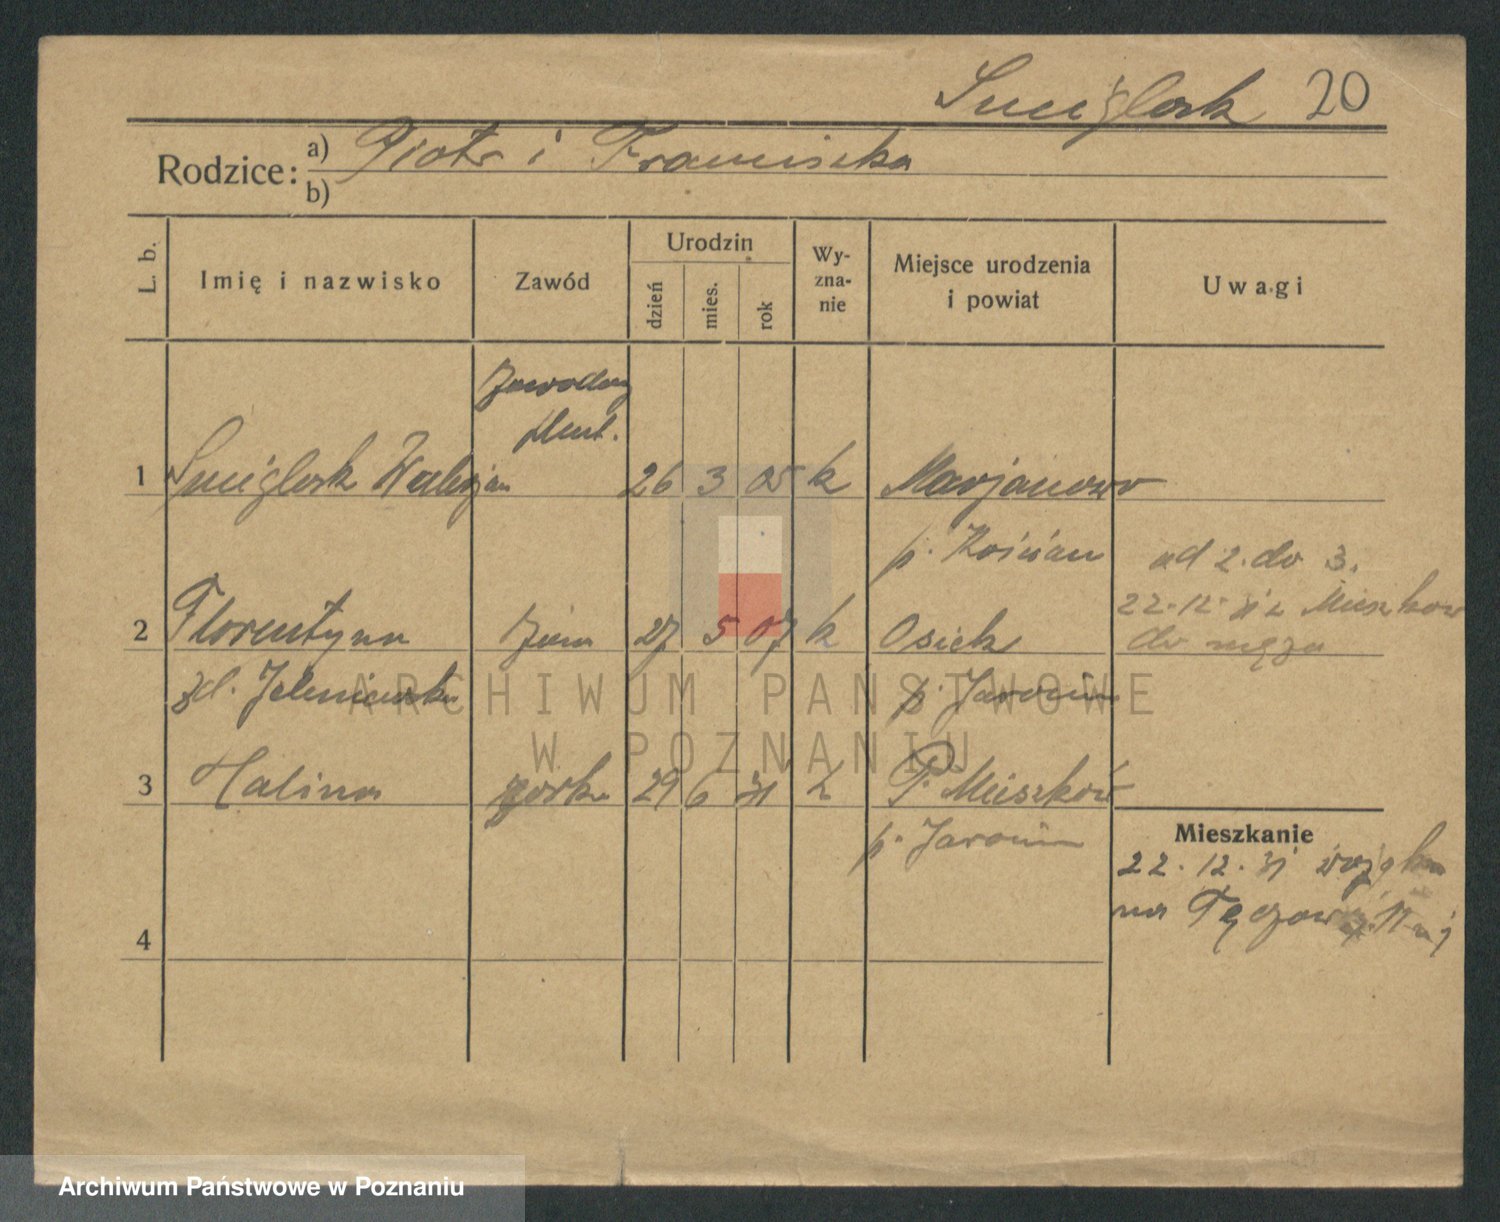 Smiglak 20
Rodzice: a) Piotr i Franciszka
b)
L. b. Imię i nazwisko Zawód Urodzin dzień mies. rok Wy-zna-nie Miejsce urodzenia i powiat Uwagi
Zawodowy
1 Walerjan 26 3 05 k Marjanowo
p. Kościan
od 2. do 3.
22.12.31 z Mieszkow
2 Florentyna żona 27 5 07 k Osiek
do męża
zd. p. Jarocin
3 Halina córka 29 6 31 k P. Mieszków
p. Jarocin
Mieszkanie
22.12.31
na Tęczowej
4
ARCHIWUM PAŃSTWOWE
W POZNANIU
Archiwum Państwowe w Poznaniu